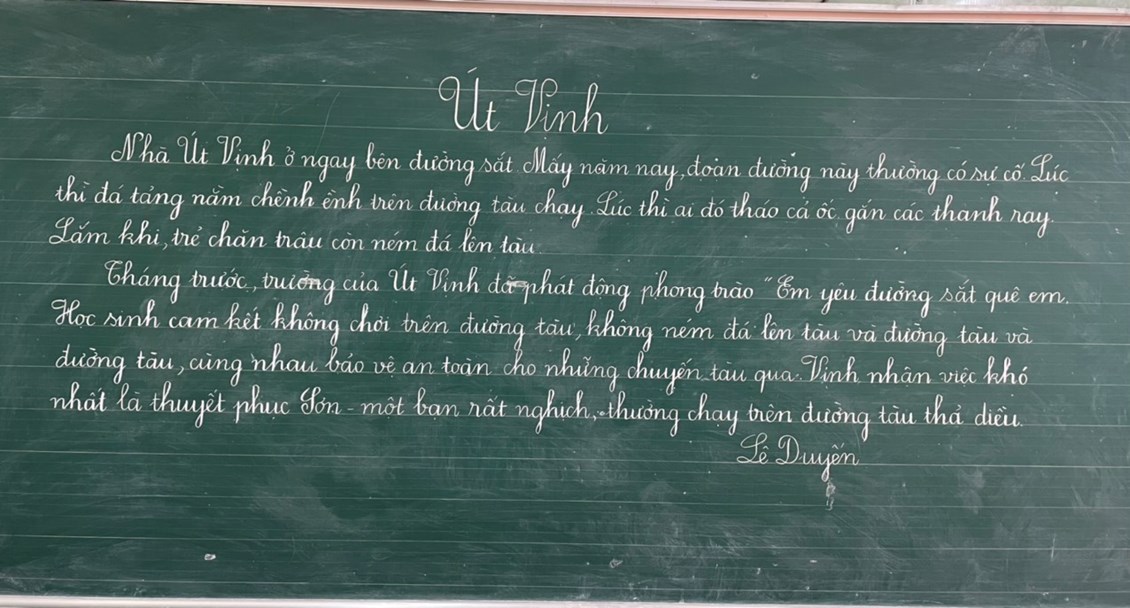 Út Vịnh
Nhà Út Vịnh ở ngay bên đường sắt. Mấy năm nay, đoạn đường này thường có sự cố. Lúc
thì đá tảng nằm chềnh ềnh trên đường tàu chạy. Lúc thì ai đó tháo cả ốc gắn các thanh ray.
Lắm khi, trẻ chăn trâu còn ném đá lên tàu.
Tháng trước, trường của Út Vịnh đã phát động phong trào "Em yêu đường sắt quê em.
Học sinh cam kết không chơi trên đường tàu, không ném đá lên tàu và đường tàu và
đường tàu, cùng nhau bảo vệ an toàn cho những chuyến tàu qua. Vịnh nhận việc khó
nhất là thuyết phục Sơn - một bạn rất nghịch, thường chạy trên đường tàu thả diều.
Lê Duyến